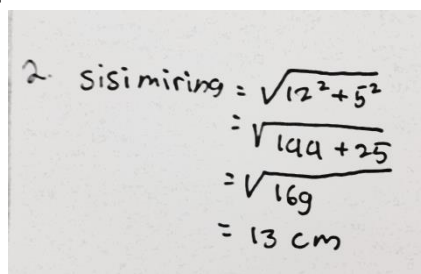 2. sisi miring = √12²+5²
= √144 + 25
= √169
= 13 cm